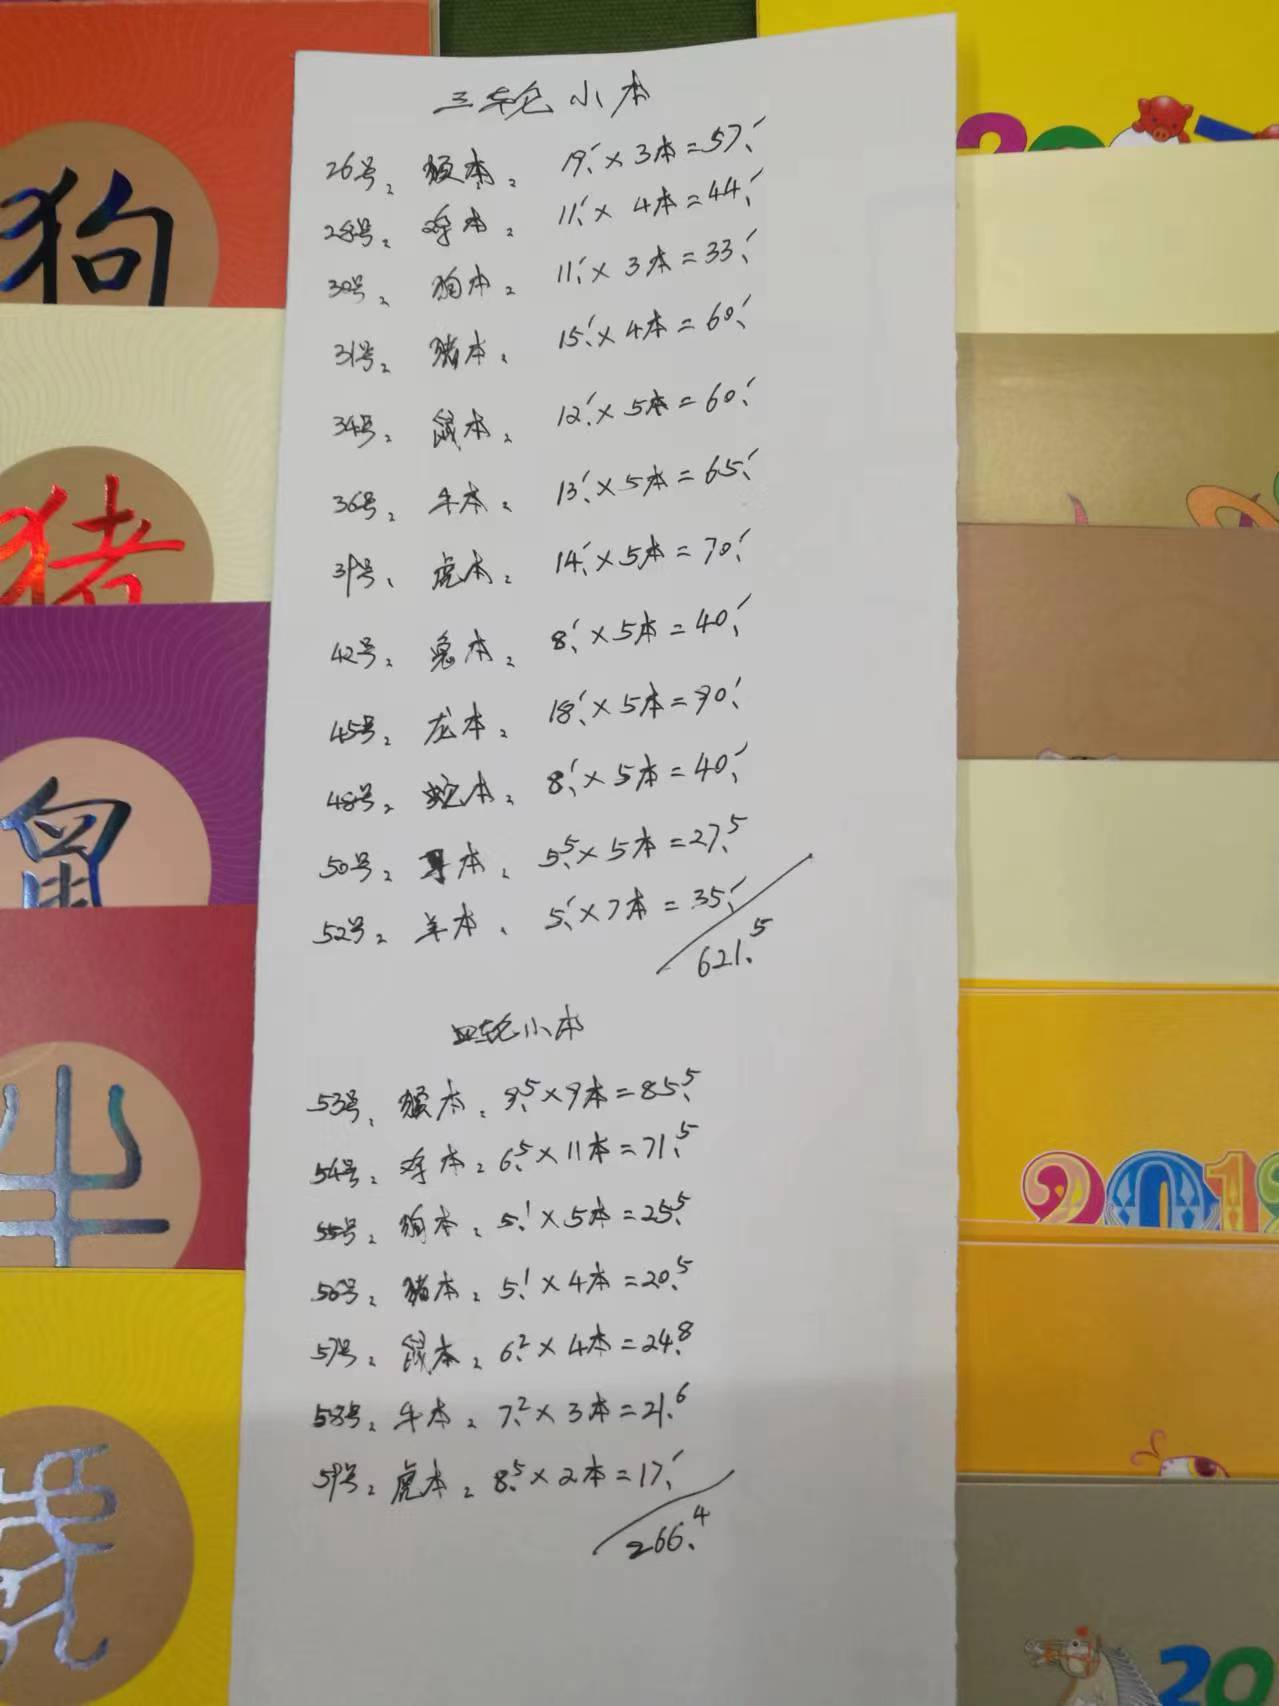 三轮小本
26号、猴本、19.×3本=57.
28号、鸡本、11.×4本=44.
30号、狗本、11.×3本=33.
31号、猪本、15.×4本=60.
34号、鼠本、12.×5本=60.
36号、牛本、13.×5本=65.
39号、虎本、14.×5本=70.
42号、兔本、8.×5本=40.
45号、龙本、18.×5本=90.
48号、蛇本、8.×5本=40.
50号、马本、5.5×5本=27.5
52号、羊本、5.×7本=35.
621.5
四轮小本
53号、猴本、9.5×9本=85.5
54号、鸡本、6.5×11本=71.5
55号、狗本、5.1×5本=25.5
56号、猪本、5.1×4本=20.5
57号、鼠本、6.2×4本=24.8
58号、牛本、7.2×3本=21.6
59号、虎本、8.5×2本=17.
266.4
狗
猪
鼠
牛
虎
20
201
20